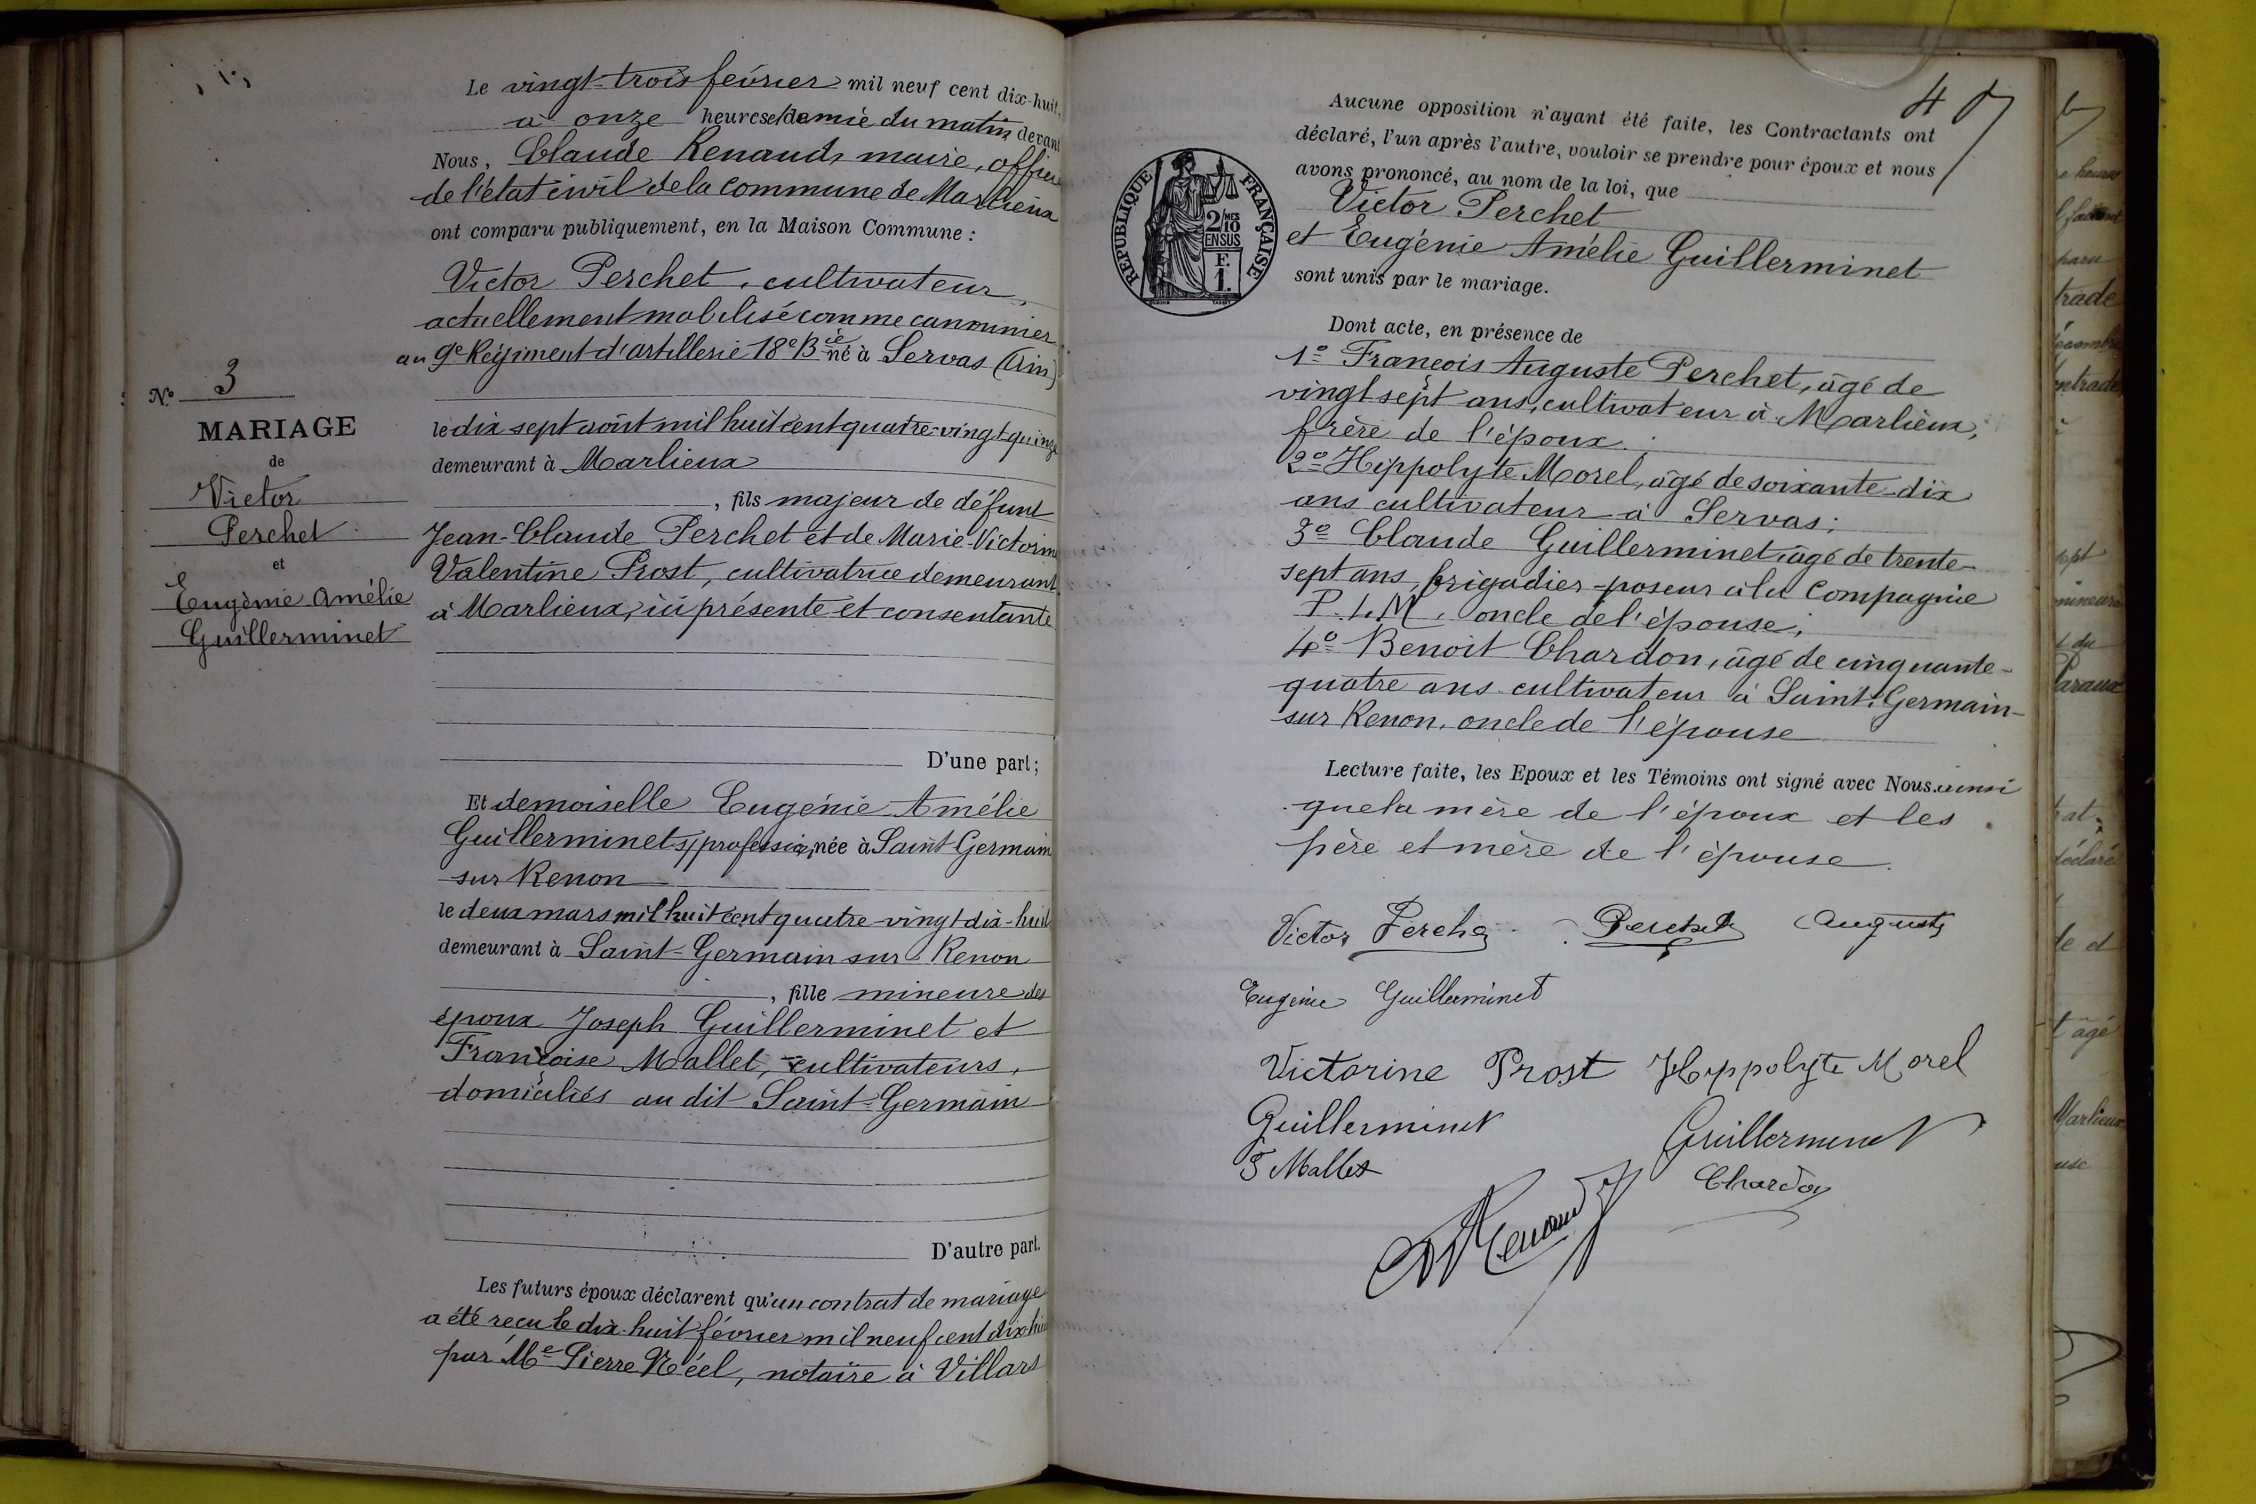 Le vingt-trois février mil neuf cent dix-huit,
à onze heures et demie du matin devant
Nous, Claude Renaud, maire, officier
de l'état civil de la commune de Marlieux
ont comparu publiquement, en la Maison Commune :
Victor Perchet, cultivateur,
actuellement mobilisé comme canonnier
au 9e Régiment d'artillerie 18e Bie né à Servas (Ain)
le dix sept août mil huit cent quatre-vingt quinze
demeurant à Marlieux
, fils majeur de défunt
Jean-Claude Perchet et de Marie-Victorine
Valentine Prost, cultivatrice demeurant
à Marlieux, ici présente et consentante
D'une part ;
Et demoiselle Eugénie Amélie
Guillerminet, s/profession, née à Saint Germain
sur Renon
le deux mars mil huit cent quatre-vingt dix-huit
demeurant à Saint-Germain sur Renon
, fille mineure des
époux Joseph Guillerminet et
Françoise Mallet, cultivateurs,
domiciliés au dit Saint-Germain
D'autre part.
Les futurs époux déclarent qu'un contrat de mariage
a été reçu le dix-huit février mil neuf cent dix-huit
par Me Pierre Néel, notaire à Villars
No 3
MARIAGE
de
Victor
Perchet
et
Eugènie Amélie
Guillerminet
4
Aucune opposition n'ayant été faite, les Contractants ont
déclaré, l'un après l'autre, vouloir se prendre pour époux et nous
avons prononcé, au nom de la loi, que
Victor Perchet
et Eugénie Amélie Guillerminet
sont unis par le mariage.
RÉPUBLIQUE FRANÇAISE
2/10 MES
EN SUS
F.
1.
Dont acte, en présence de
1o François Auguste Perchet, âgé de
vingt sept ans, cultivateur à Marlieux,
frère de l'époux.
2o Hippolyte Morel, âgé de soixante-dix
ans cultivateur à Servas ;
3o Claude Guillerminet âgé de trente-
sept ans, brigadier-poseur à la Compagnie
P.L.M, oncle de l'épouse ;
4o Benoit Chardon, âgé de cinquante-
quatre ans cultivateur à Saint-Germain-
sur Renon, oncle de l'épouse
Lecture faite, les Epoux et les Témoins ont signé avec Nous ainsi
que la mère de l'époux et les
père et mère de l'épouse.
Victor Perchet Perchet Auguste
Eugénie Guillerminet
Victorine Prost Hyppolyte Morel
Guillerminet Guillerminet
F Mallet Chardon
Renaud